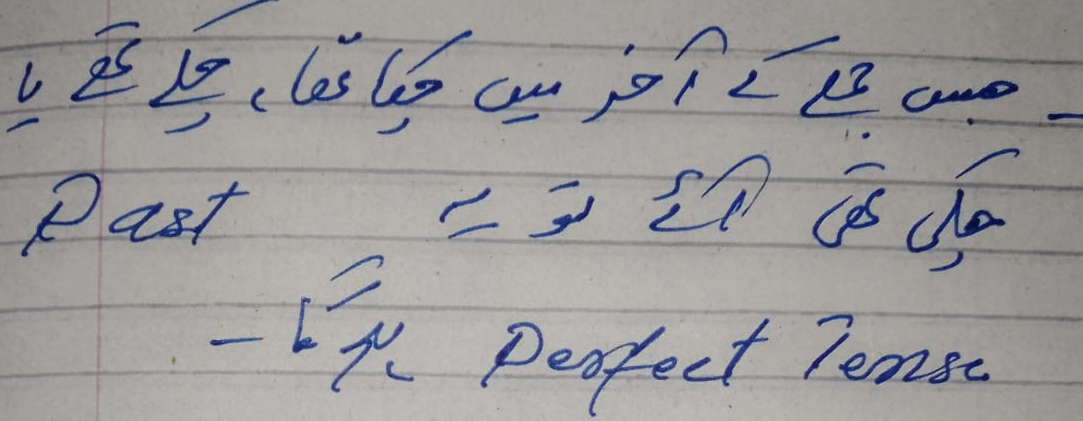 ۔ جس جملے کے آخر میں چکا تھا، چکے تھے یا
چکی تھی آئے تو یہ Past
Perfect Tense ہو گا ۔